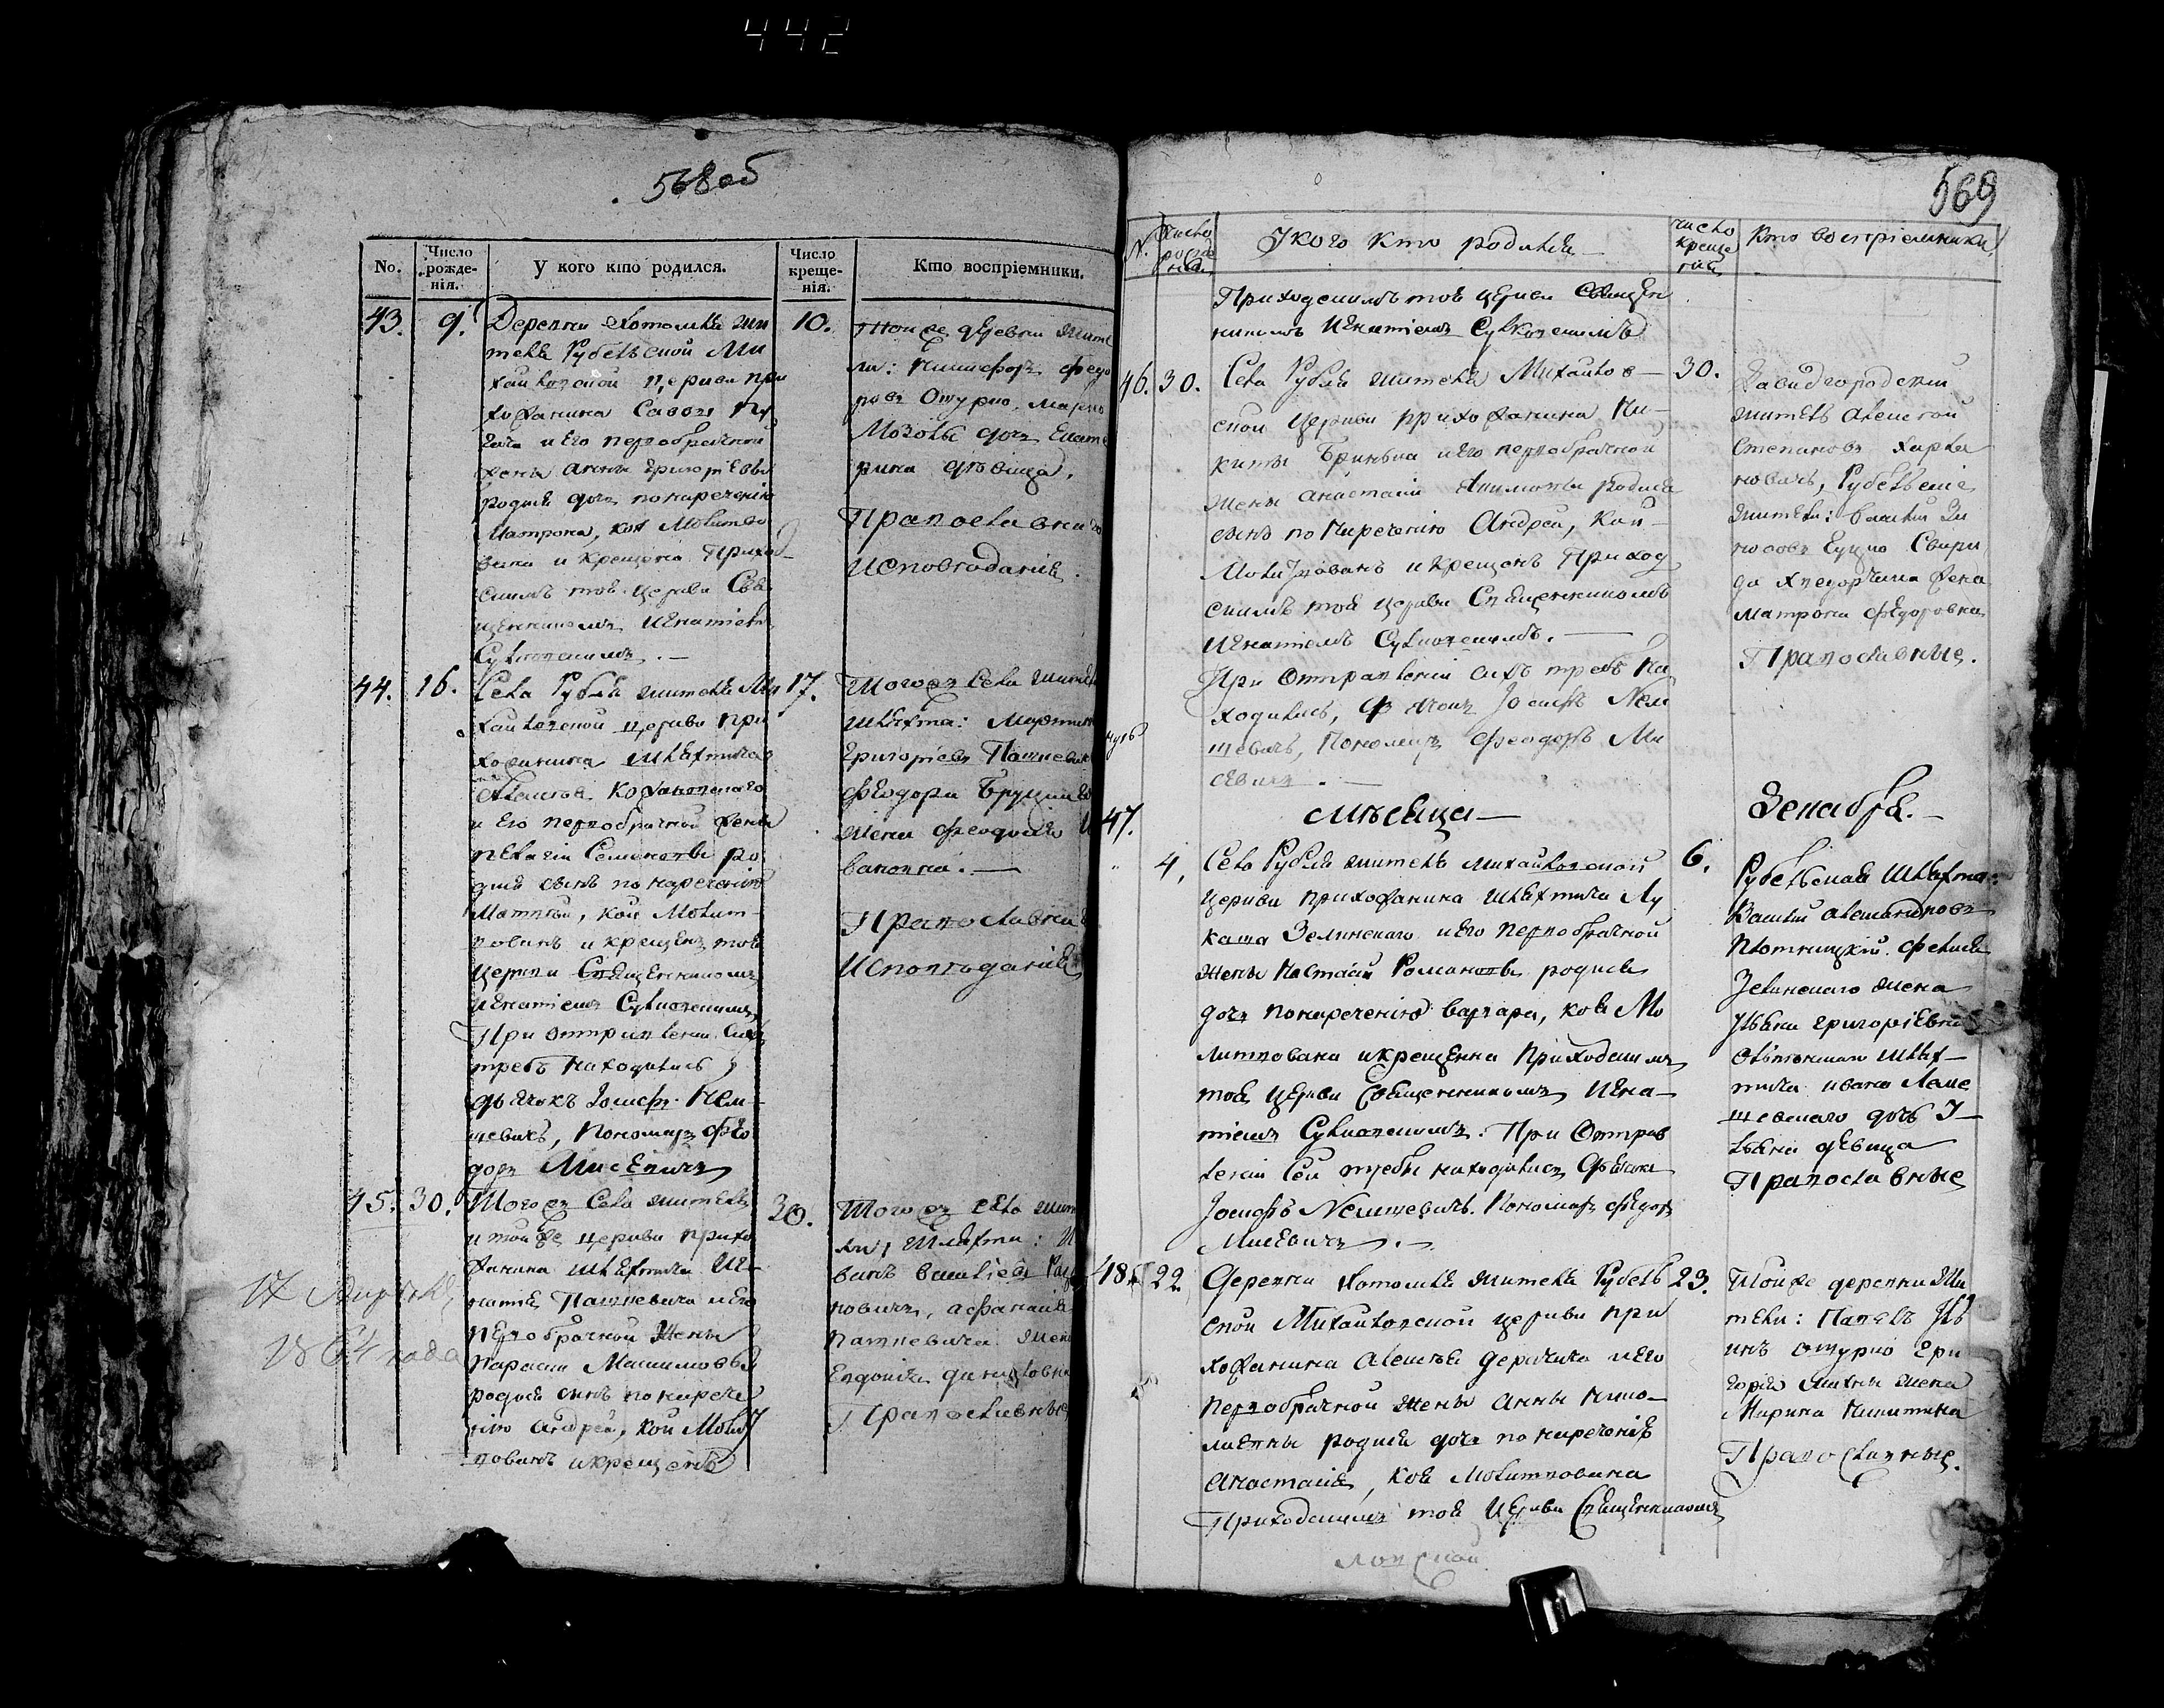 442
568об
No.
Число рожденія.
У кого кто родился.
Число крещенія.
Кто воспріемники.
43. 9.
Деревни Хотомля жи
теля Рубельской Ми
хайловской церкви при
хожанина Савы
и его первобрачной
жены Анны Григорьевы
родися дочь по наречению
Матрона, коя Молитво
вана и крещена Приход
скимъ тоя церкви Свя
щенникомъ Игнатіемъ
Сулковскимъ.
10.
Тоей же деревни жите
ли: Никифоръ Федо
ровъ Огурцо, Марко
Мозоли дочь Екате
рина девица.
Православнаго
исповеданія.
44. 16.
Села Рубля жителя Ми
хайловской церкви при
хожанина шляхтича
Алексея
и его первобрачной жены
Пелагіи Семеновы ро
дися сынъ по наречению
Матвей, кой Молит
вованъ и крещенъ тоя
церкви Священникомъ
Игнатіемъ Сулковскимъ
При отправленіи сихъ
требъ находились
дьячокъ Іосифъ Нем
цевичъ, Пономарь Фео
доръ Мисевичъ
17.
Тогожъ села жители
шляхта: Мартинъ
Григорьевъ Пашкевич
Феодора
жена Феодосія И
вановна.
Православнаго
исповеданія
45. 30.
Тогожъ села жителя
и тоейже церкви прихо
жанина шляхтича Иг
натія Пашкевича и его
первобрачной жены
Параски Максимовы
родися сынъ по нарече
нію Андрей, кой Молит
вованъ и крещенъ
30.
Тогожъ села жите
ли, шляхта: И
ванъ Василіевъ
новичъ, Афанасія
Пашкевича жена
Евдокія Даниловна
Православные
17
1864 года
569
N.
Число рожденія
У кого кто родился
число крещенія
Кто воспріемники
Приходскимъ тоя церкви Священ
никомъ Игнатіемъ Сулковскимъ
46. 30.
Села Рубля жителя Михайлов
ской церкви прихожанина Ни
киты и его первобрачной
жены Анастасіи родися
сынъ по наречению Андрей, кой
Молитвованъ и крещенъ Приход
скимъ тоя церкви Священникомъ
Игнатіемъ Сулковскимъ.
При отправленіи сихъ требъ на
ходились, дьячокъ Іосифъ Нем
цевичъ, Пономарь Феодоръ Ми
севичъ.
30.
Давидгородский
житель Алексей
Степановъ Харла
новичъ, Рубельские
жители: Василий
жена
Матрона Федоровна
Православные.
месяца Декабря.
47.
4.
Села Рубля жителя Михайловской
церкви прихожанина шляхтича Лу
каша Зелинского и его первобрачной
жены Настасіи Романовы родися
дочь по наречению Варвара, коя Мо
литвована и крещенна Приходскимъ
тоя церкви Священникомъ Игна
тіемъ Сулковскимъ. При Отправ
леніи сей требы находились дьячокъ
Іосифъ Немцевичъ. Пономарь Федоръ
Мисевичъ.
6.
Рубельская шляхта:
Василий Александровъ
Плотницкий. Феликса
Зелинскаго жена
Ульяна Григоріевна
Ольпенского шлях
тича Ивана
дочь У
льяна девица
Православные
48. 22.
Деревни Хотомля жителя Рубель
ской Михайловской церкви при
хожанина Алексея и его
первобрачной жены Анны
родися дочь по наречению
Анастасія, коя Молитвована
Приходскимъ тоя церкви Священникомъ
23.
Тоейже деревни жи
тели: Павелъ
инъ Огурцо Гри
горія жена
Марина Никитина
Православные.